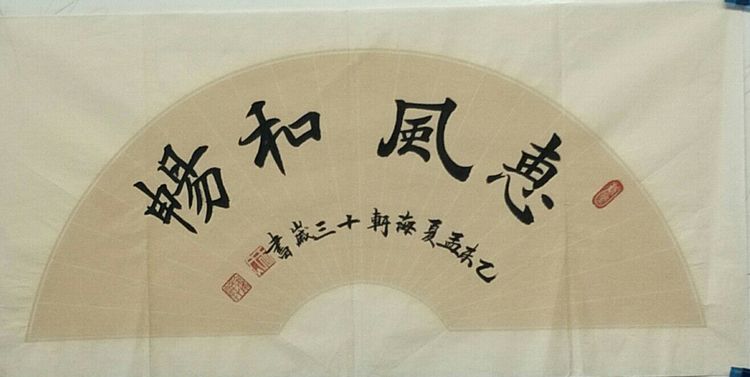 惠風和暢
乙未孟夏海軒十三歲書